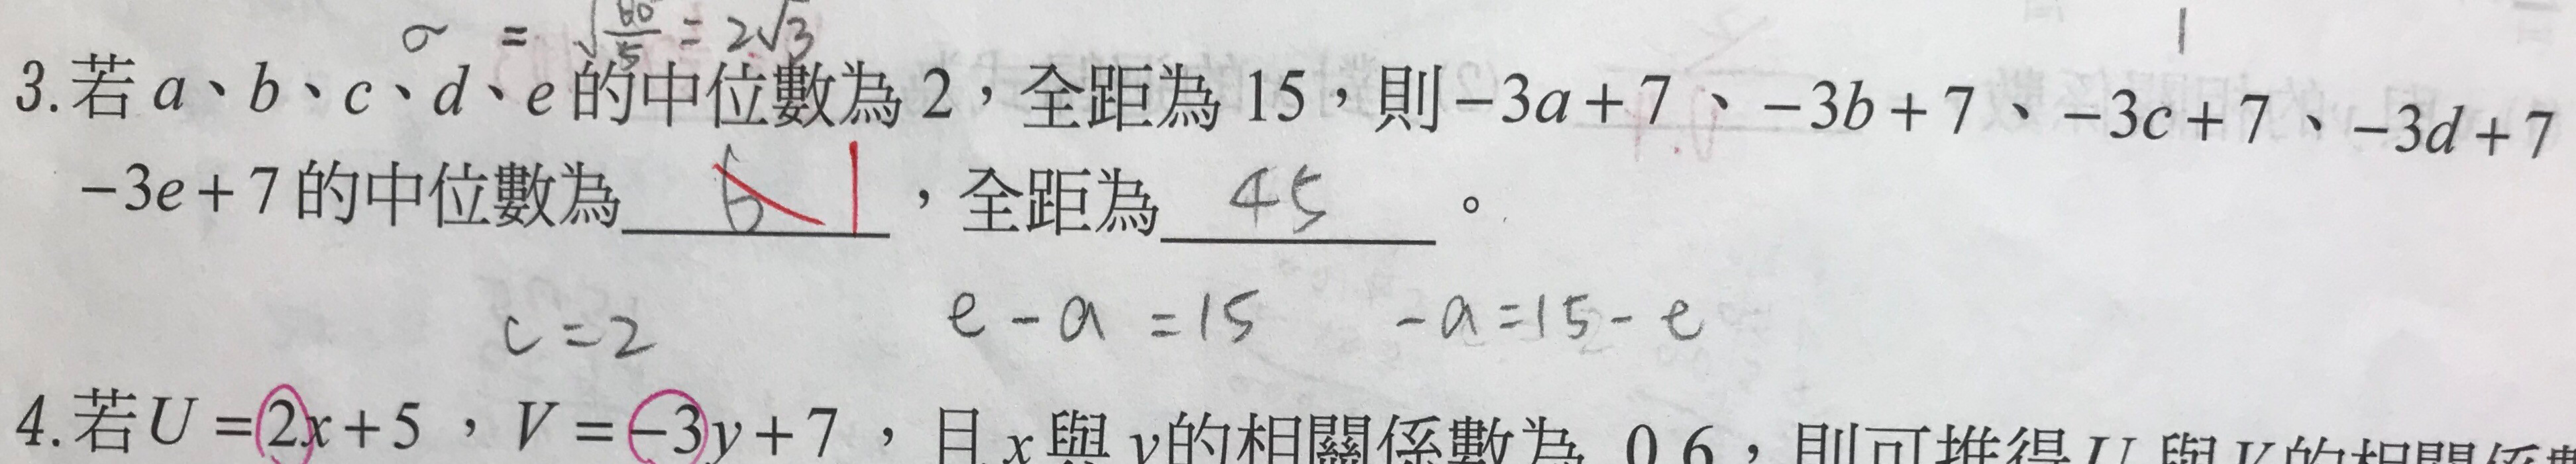 σ = √60/5 = 2√3
3. 若 a、b、c、d、e 的中位數為 2，全距為 15，則 −3a+7、−3b+7、−3c+7、−3d+7
−3e+7 的中位數為 6 1，全距為 45。
c=2 e−a=15 −a=15−e
4. 若 U=2x+5，V=−3y+7，且 x 與 y 的相關係數為 0.6，則可推得 U 與 V 的相關係數